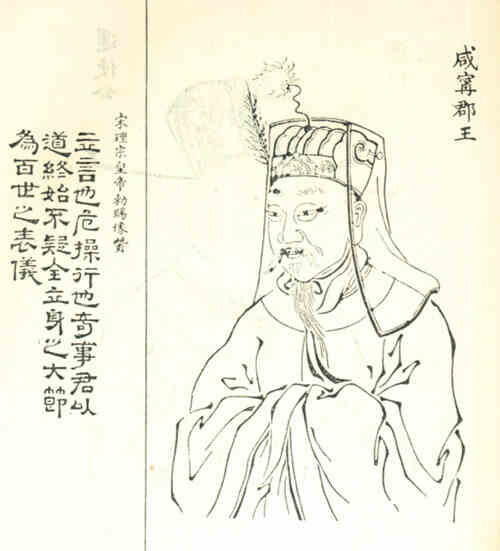 咸寧郡王
宋理宗皇帝勑賜像贊
立言也危操行也奇事君以
道終始不疑全立身之大節
為百世之表儀